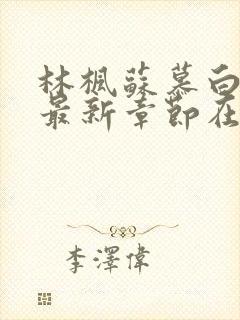 林楓蘇慕白
最新章節在
李澤偉